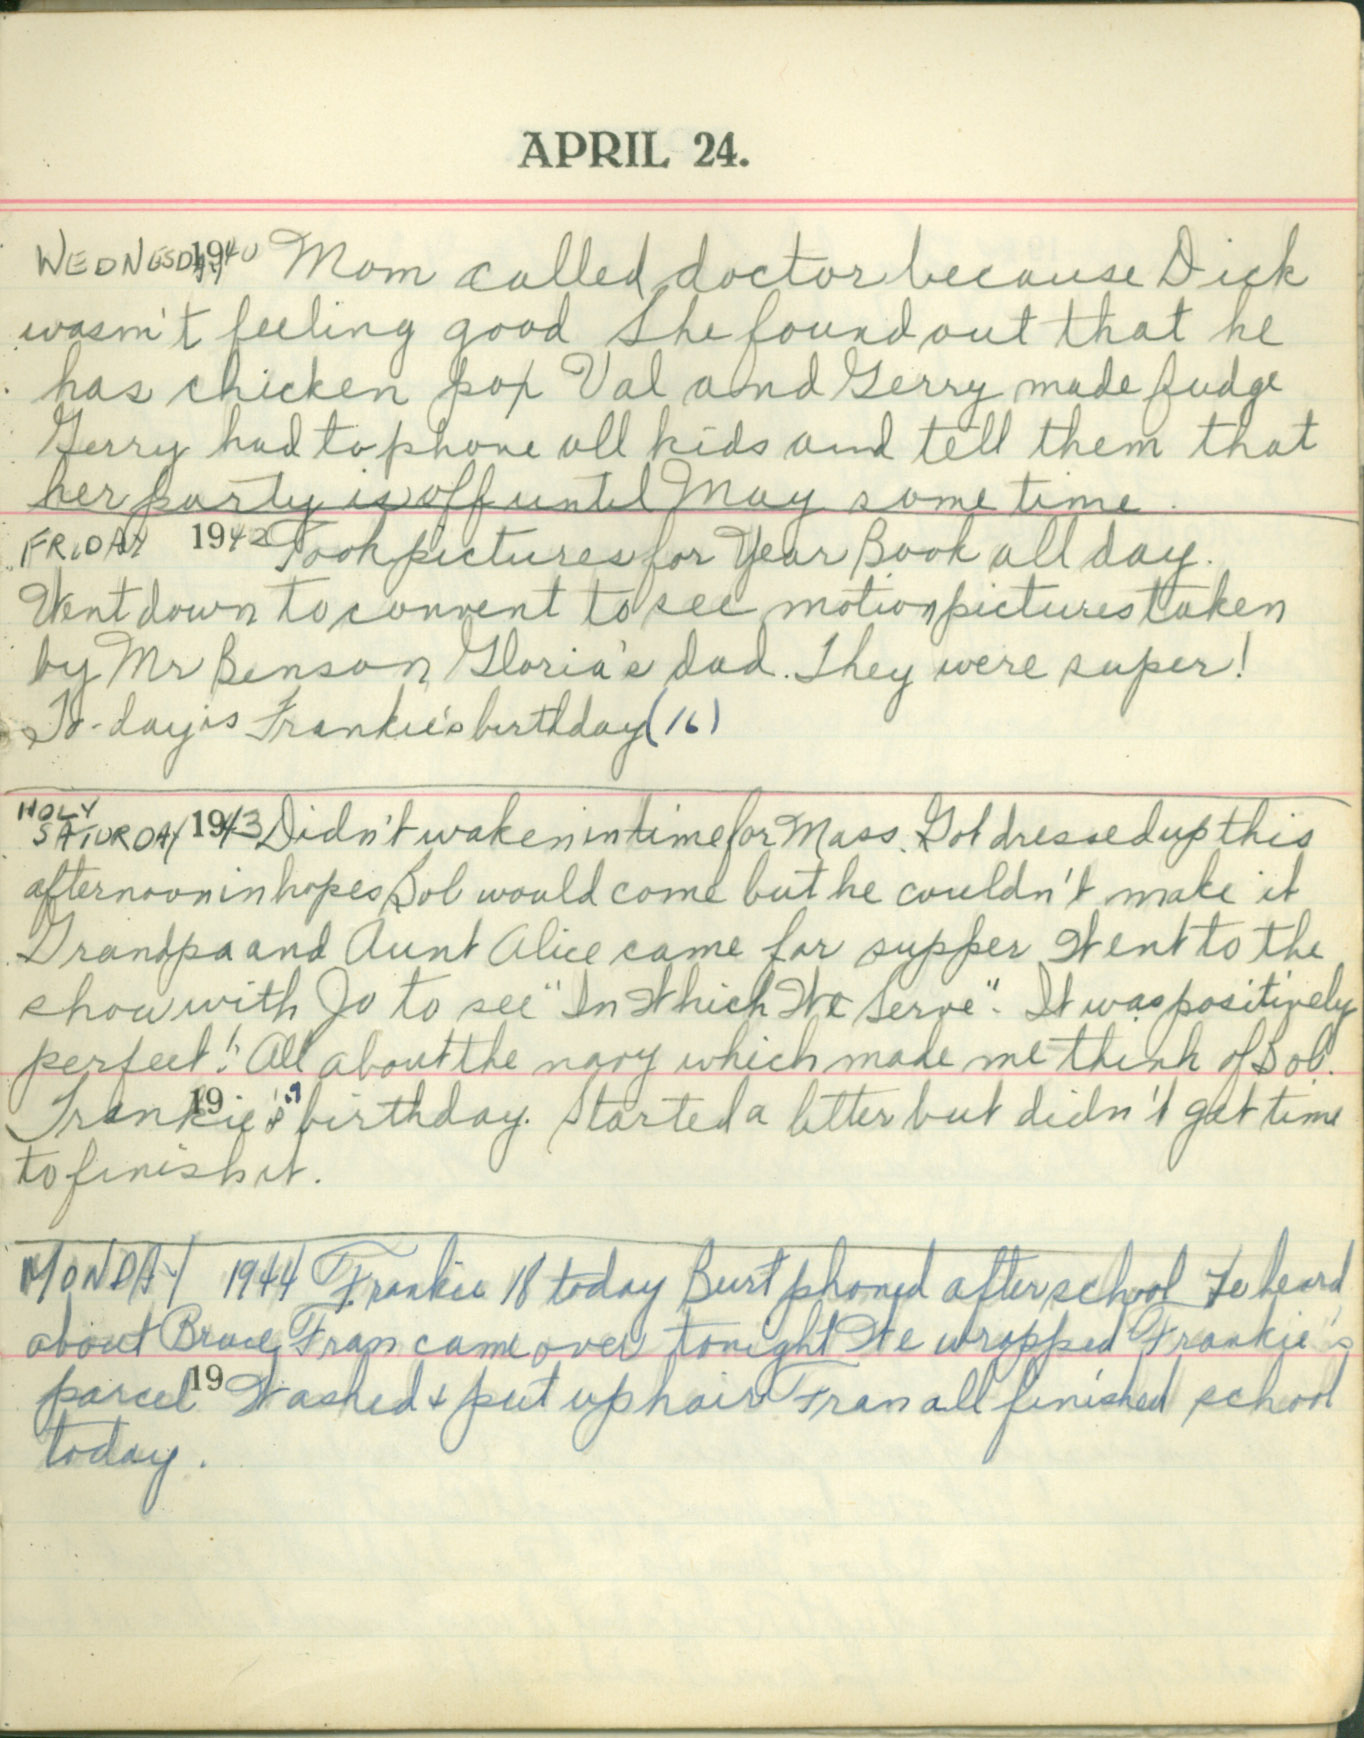 APRIL 24.
WEDNESDAY 1940 Mom called doctor because Dick
wasn't feeling good She found out that he
has chicken pox Val and Gerry made fudge
Gerry had to phone all kids and tell them that
her party is off until May some time.
FRIDAY 1942 Took pictures for Year Book all day.
Went down to convent to see motion pictures taken
by Mr Benson, Gloria's dad. They were super!
To-day is Frankie's birthday (16)
HOLY
SATURDAY 1943 Didn't waken in time for Mass. Got dressed up this
afternoon in hopes Bob would come but he couldn't make it
Grandpa and Aunt Alice came for supper Went to the
show with Jo to see "In Which We Serve". It was positively
perfect! All about the navy which made me think of Bob.
19
Frankie's birthday. Started a letter but didn't get time
to finish it.
MONDAY 1944 Frankie 18 today Burt phoned after school He heard
about Bruce, Fran came over tonight We wrapped Frankie's
parcel 19 Washed & put up hair Fran all finished school
today.